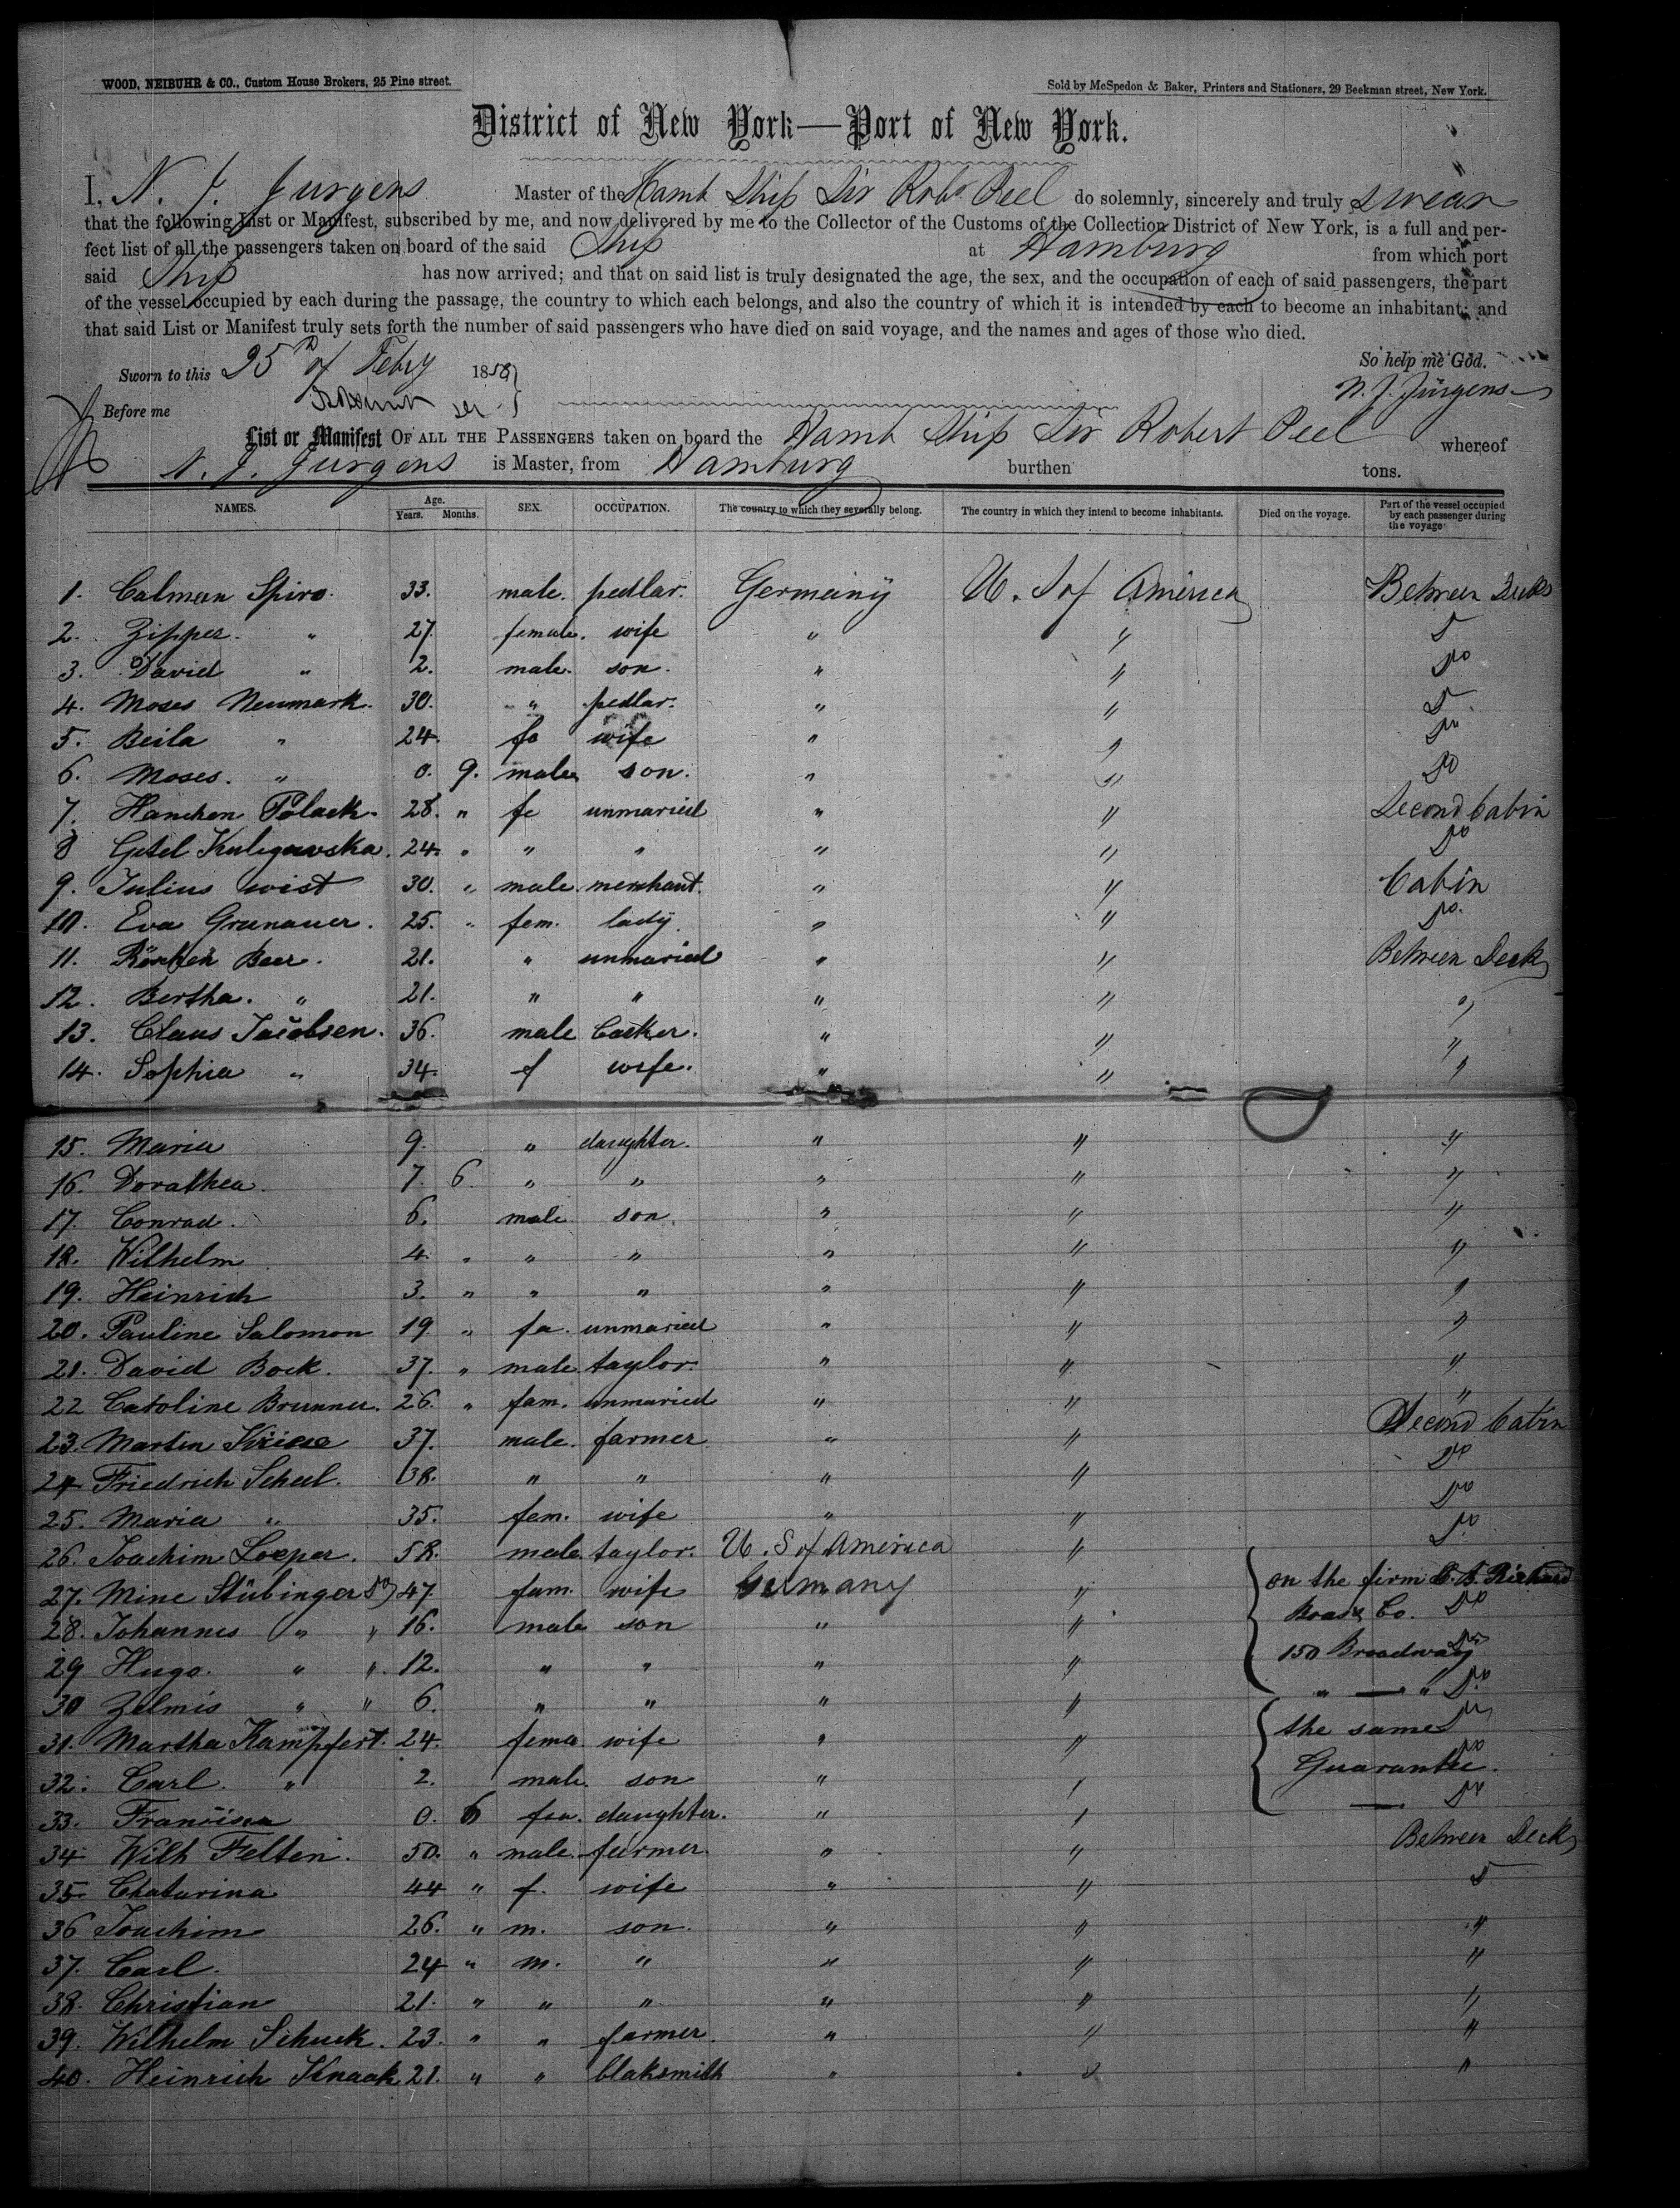 WOOD, NEIBUHR & CO., Custom House Brokers, 25 Pine street.
Sold by McSpedon & Baker, Printers and Stationers, 29 Beekman street, New York.
District of New York—Port of New York.
I, N. J. Jurgens Master of the Hamb Ship Sir Robt Peel do solemnly, sincerely and truly swear
that the following List or Manifest, subscribed by me, and now delivered by me to the Collector of the Customs of the Collection District of New York, is a full and per-
fect list of all the passengers taken on board of the said Ship at Hamburg from which port
said Ship has now arrived; and that on said list is truly designated the age, the sex, and the occupation of each of said passengers, the part
of the vessel occupied by each during the passage, the country to which each belongs, and also the country of which it is intended by each to become an inhabitant; and
that said List or Manifest truly sets forth the number of said passengers who have died on said voyage, and the names and ages of those who died.
So help me God.
Sworn to this 25th of Febry 1858
N. J. Jürgens
Before me
List or Manifest OF ALL THE PASSENGERS taken on board the Hamb Ship Sir Robert Peel whereof
N. J. Jurgens is Master, from Hamburg burthen tons.
NAMES. Age. Years. Months. SEX. OCCUPATION. The country to which they severally belong. The country in which they intend to become inhabitants. Died on the voyage. Part of the vessel occupied by each passenger during the voyage
1. Calman Spiro. 33. male. pedlar. Germany U. S of America Between Decks
2. Zipper. " 27. female. wife " " D
3. David " 2. male. son. " " Do
4. Moses Neumark. 30. " pedlar. " " D
5. Beila " 24. fe wife " " Do
6. Moses. " 0. 9. male son. " " Do
7. Hanchen Polack. 28. " fe unmaried " " Second Cabin
8 Getel 24. " " " " " Do
9. Julius wist 30. " male merchant. " " Cabin
10. Eva Grunauer. 25. " fem. lady. " " Do.
11. Beer. 21. " unmaried " " Between Deck
12. Bertha. " 21. " " " " "
13. Claus Jacobsen. 36. male " " "
14. Sophia " 34. f wife. " " "
15. Maria 9. " daughter. " " "
16. Dorathea. 7. 6. " " " " "
17. Conrad. 6. male son. " " "
18. Wilhelm 4. " " " " " "
19. Heinrich 3. " " " " " "
20. Pauline Salomon 19 " fe. unmaried " " "
21. David Bock. 37. " male taylor. " " "
22 Caroline Brunner. 26. " fam. unmaried " " "
23. Martin 37. male. farmer " " Second Cabin
24 Friedrich Scheel. 38. " " " " Do
25. Maria " 35. fem. wife " " Do
26. Joachim Loeper. 58. male. taylor. U. S of America " Do
27. Mine Stübinger Do 47. fam. wife Germany " on the firm C. B. Richard
28. Johannes " " 16. male son " " Boas & Co. Do
29 Hugo. " " 12. " " " " 150 Broadway Do
30 Zelmis " " 6. " " " " " — " Do
31. Martha Kampfert. 24. fema wife " " the same Do
32. Carl. " 2. male. son " " Guarantee. Do
33. Francisca 0. 6 fea. daughter. " " — Do
34 Wilh Felten. 50. " male. farmer. " " Between Deck
35 Chatarina 44 " f. wife " " D
36 Joachim 26. " m. son. " " "
37. Carl. 24 " m. " " " "
38. Christian 21. " " " " " "
39. Wilhelm Schuck. 23. " " farmer. " " "
40. Heinrich Knaak 21. " " blaksmith " " "